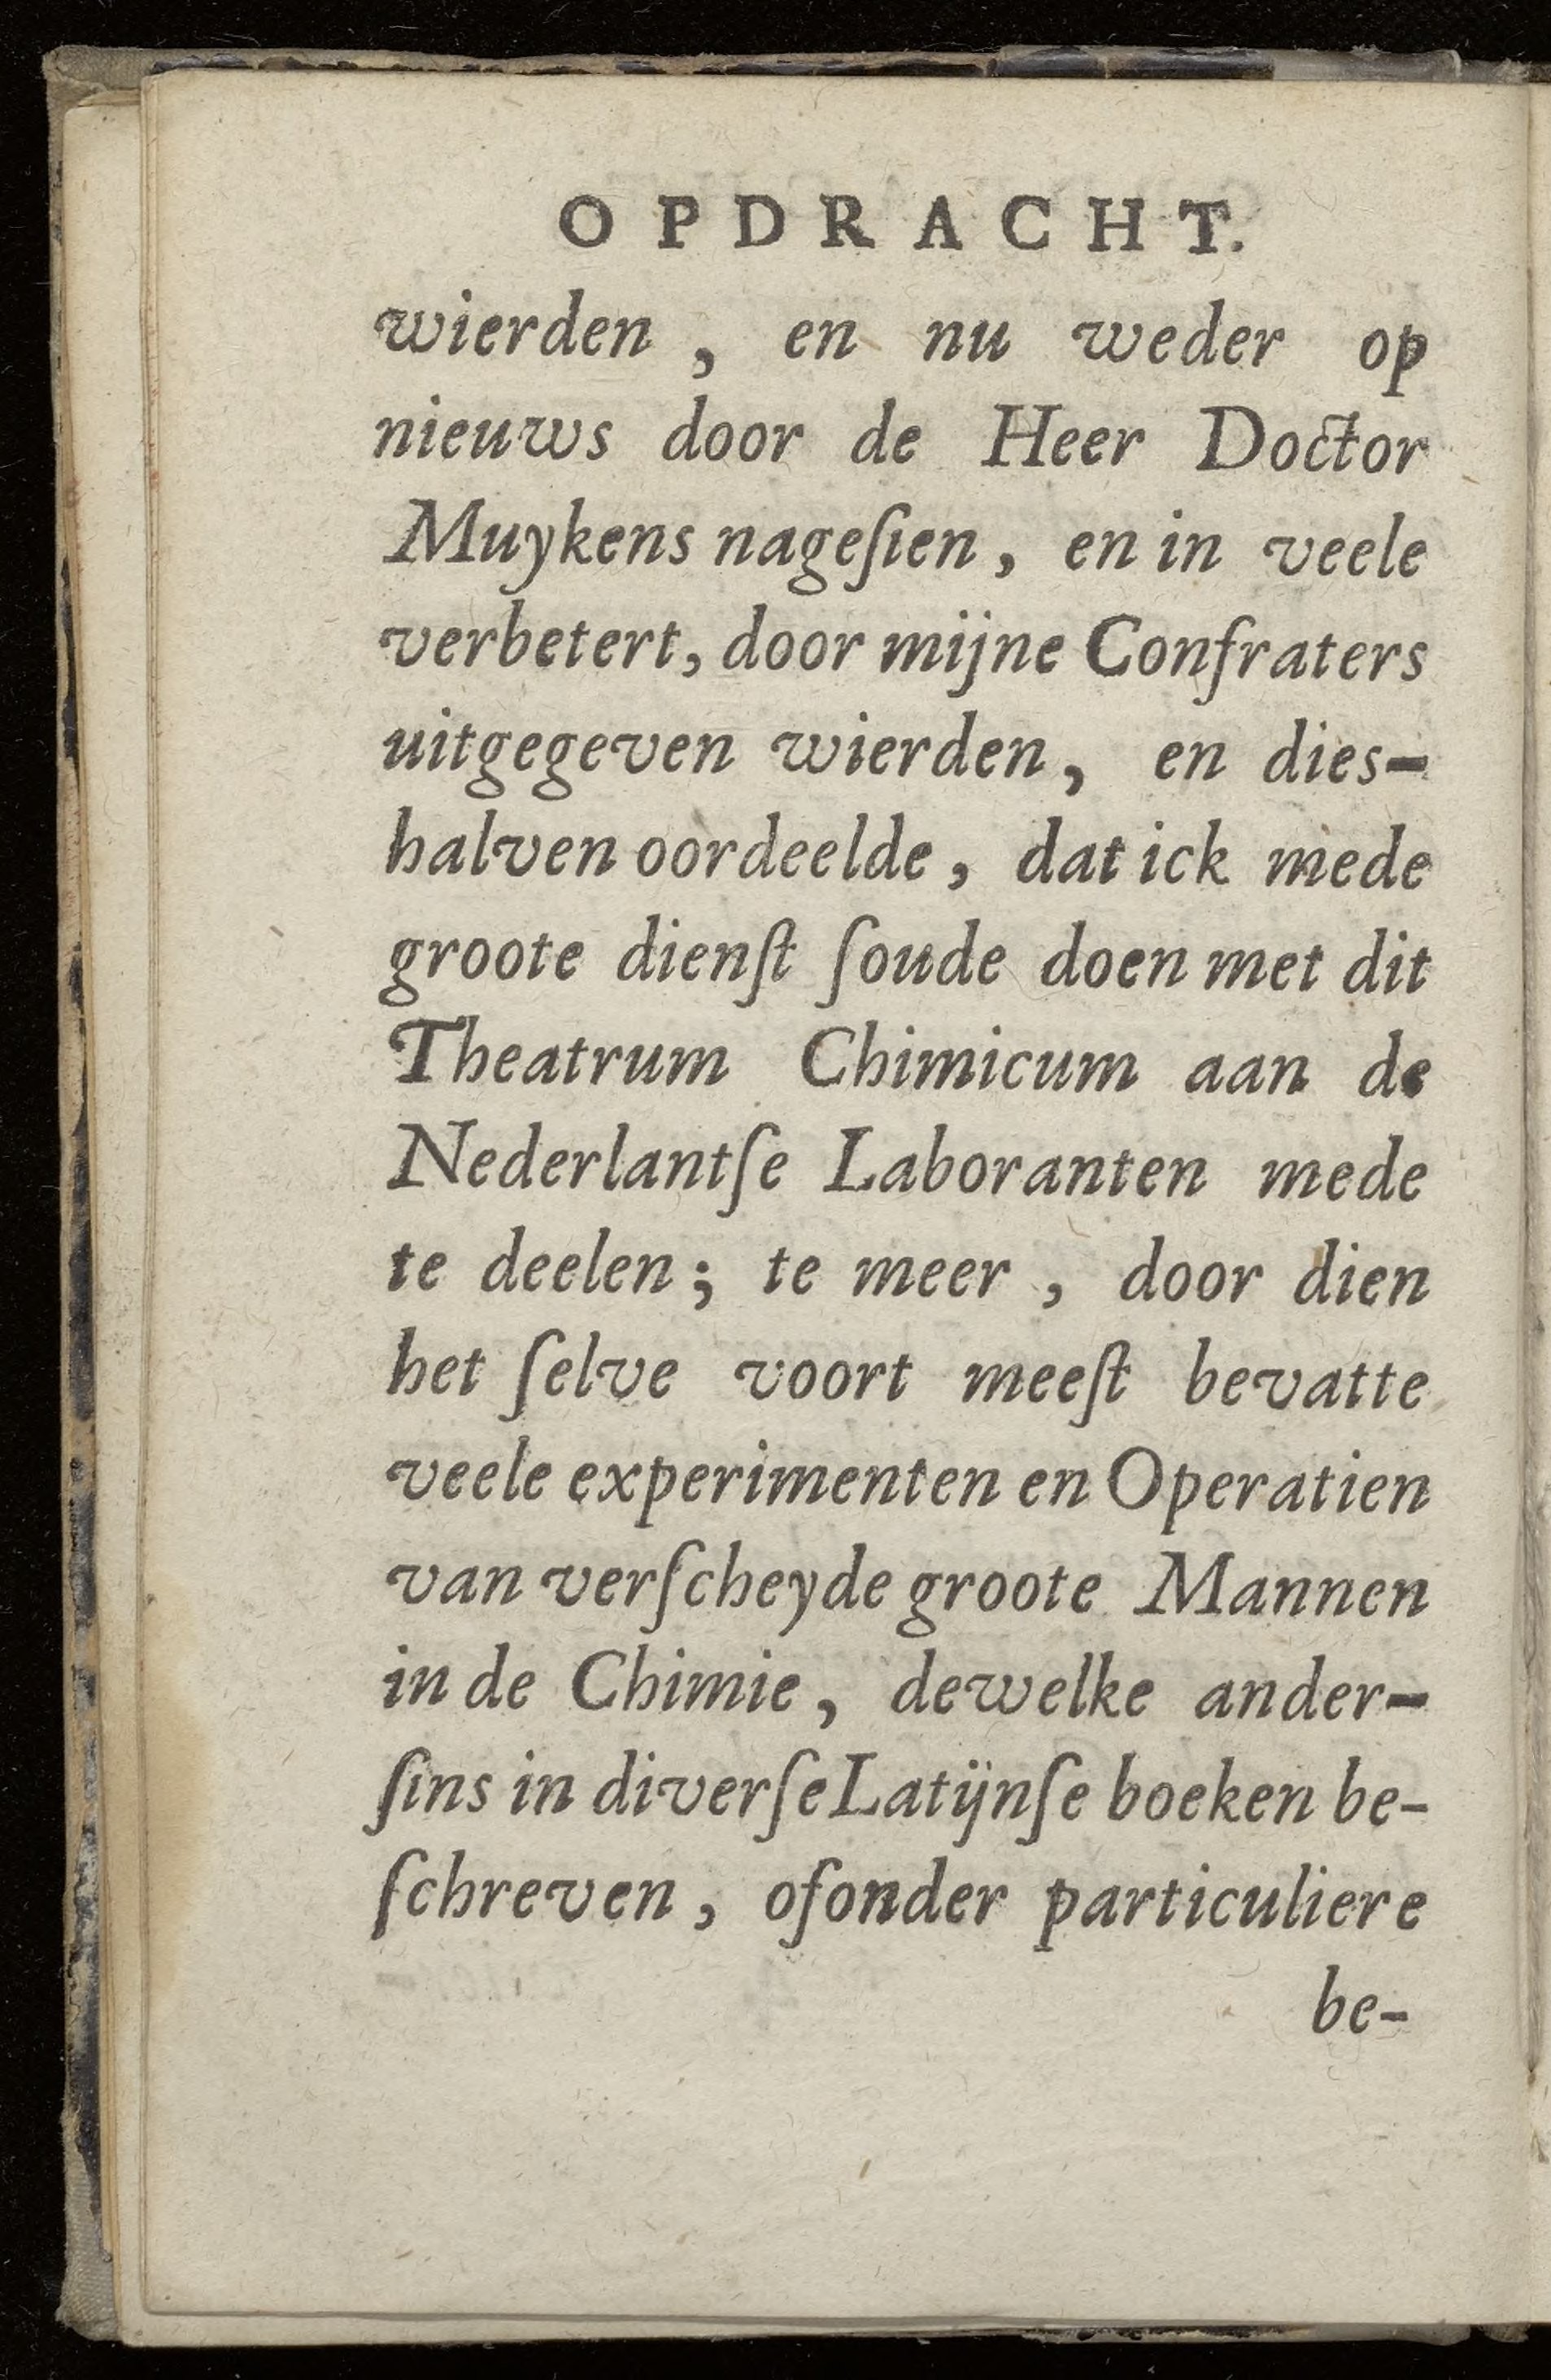 OPDRACHT.
wierden, en nu weder op
nieuws door de Heer Doctor
Muykens nageſien, en in veele
verbetert, door mijne Confraters
uitgegeven wierden, en dies-
halven oordeelde, dat ick mede
groote dienſt ſoude doen met dit
Theatrum Chimicum aan de
Nederlantſe Laboranten mede
te deelen; te meer, door dien
het ſelve voort meeſt bevatte
veele experimenten en Operatien
van verſcheyde groote Mannen
in de Chimie, dewelke ander-
ſins in diverſe Latijnſe boeken be-
ſchreven, ofonder particuliere
be-